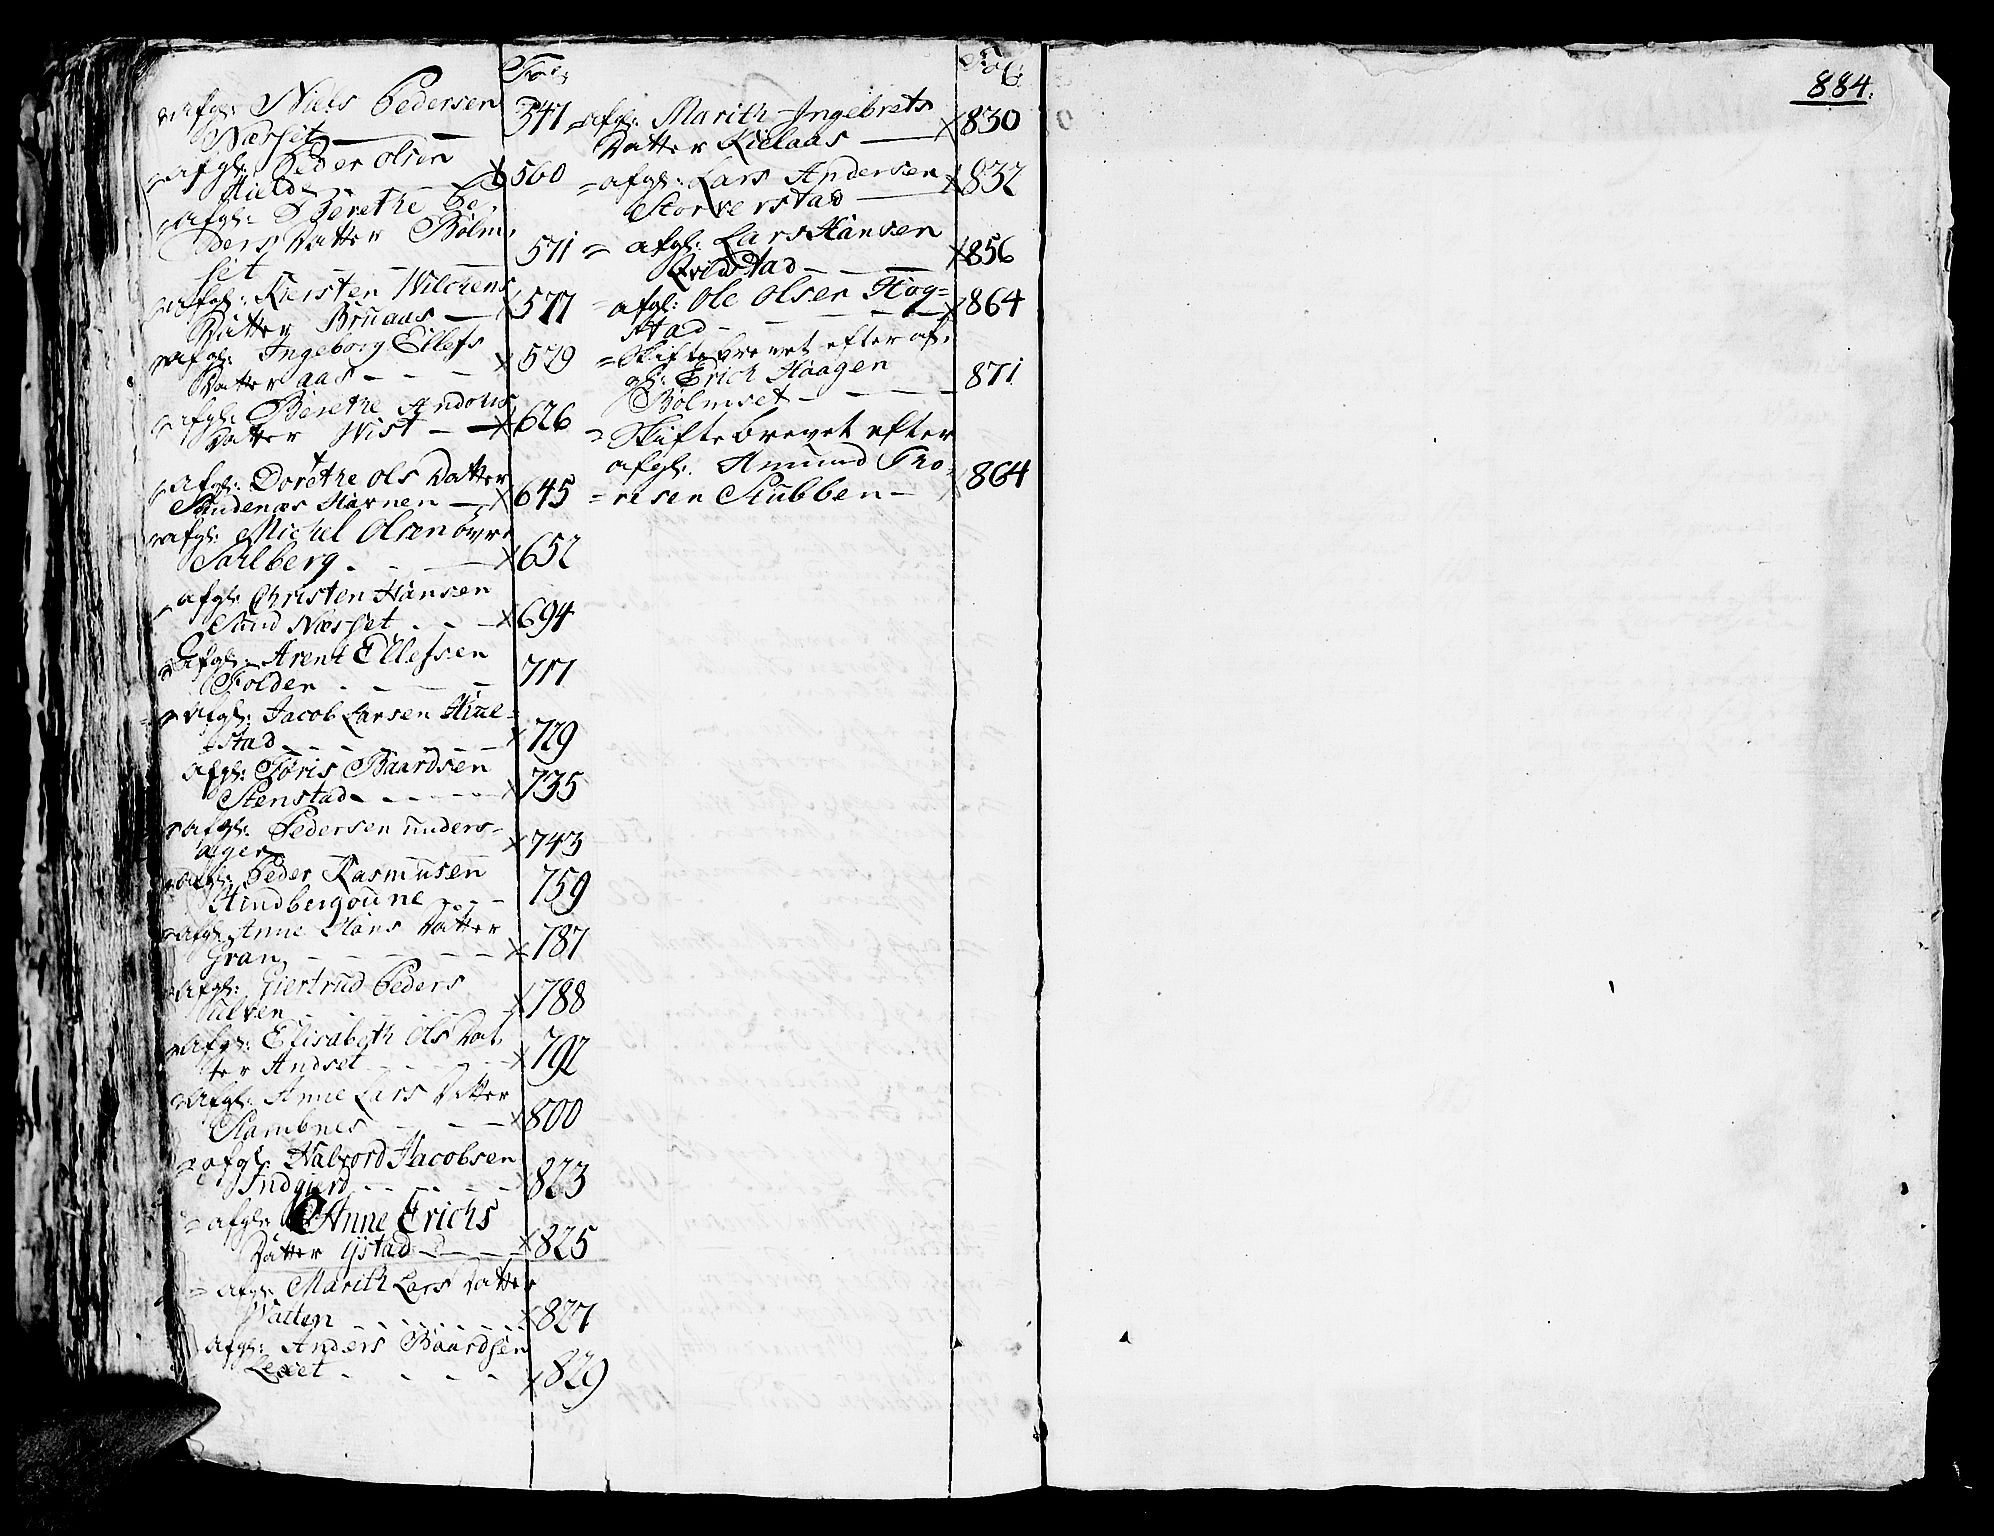 Fol:
afgl: Niels Pedersen
Næsset — 547
afgl: Peder Olsen
Hield — 560
afgl: Berethe Pe,
ders Datter Bølm,
set — 571
afgl: Kiersten Wilchens
Datter Bruaas — 577
afgl: Ingeborg Ellefs
Datter aas — 579
afgl: Berethe Andous
Datter Wist — 626
afgl: Dorethe Ols Datter
Sundenæs Havnen — 645
afgl: Michel Olsen øvre
Salberg — 652
afgl: Christen Hansen
Sund Næsset — 694
afgl: Arent Ellefsen
Folden — 717
afgl: Jacob Larsen
stad — 729
afgl: Joris Baardsen
Stenstad — 735
afgl: Pedersen unders-
ager — 743
afgl: Peder Rasmusen
759
afgl: Anne Hans Datter
Gran — 787
afgl: Giertrud Peders
788
afgl: Elisabeth Ols Dat,
ter Andset — 792
afgl: Anne Lars Datter
Stambnes — 800
afgl: Halvord Jacobsen
Indgierd — 823
afgl: Anne Erichs
Datter Ystad — 825
afgl: Marith Lars Datter
Watten — 827
afgl: Anders Baardsen
Lexet — 829
Fol:
afgl: Marith Ingebrets
Datter Kielaas — 830
afgl: Lars Andersen
Storverstad — 832
afgl: Lars Hansen
Qvelstad — 856
afgl: Ole Olsen Høg=
stad — 864
Skiftebrevet efter af,
gl: Erich Haagen
Bølmset — 871
Skiftebrevet efter
afgl: Amund Tho,
resen Stubben — 864
884.